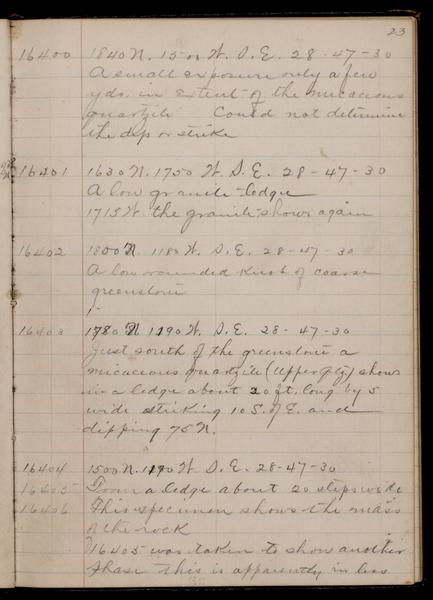 23
16400 1840 N. 1500 W. S. E. 28-47-30
A small exposure only a few
yds. in extent of the micaceous
quartzite Could not determine
the dip or strike
16401 1630 N. 1750 W. S. E. 28-47-30
A low granite ledge
1715 W. the granite shows again
16402 1800 N. 1180 W. S. E. 28-47-30
A low rounded knob of coarse
greenstone
16403 1780 N 1190 W. S. E. 28-47-30
Just south of the greenstone a
micaceous quartzite (Upper Qtz) shows
in a ledge about 20 ft. long by 5
wide striking 10 S. of E. and
dipping 75 N.
16404 1500 N. 1190 W S. E. 28-47-30
16405 From a ledge about 20 steps wide
16406 This specimen shows the mass
of the rock
16405 was taken to show another
phase This is apparently in less